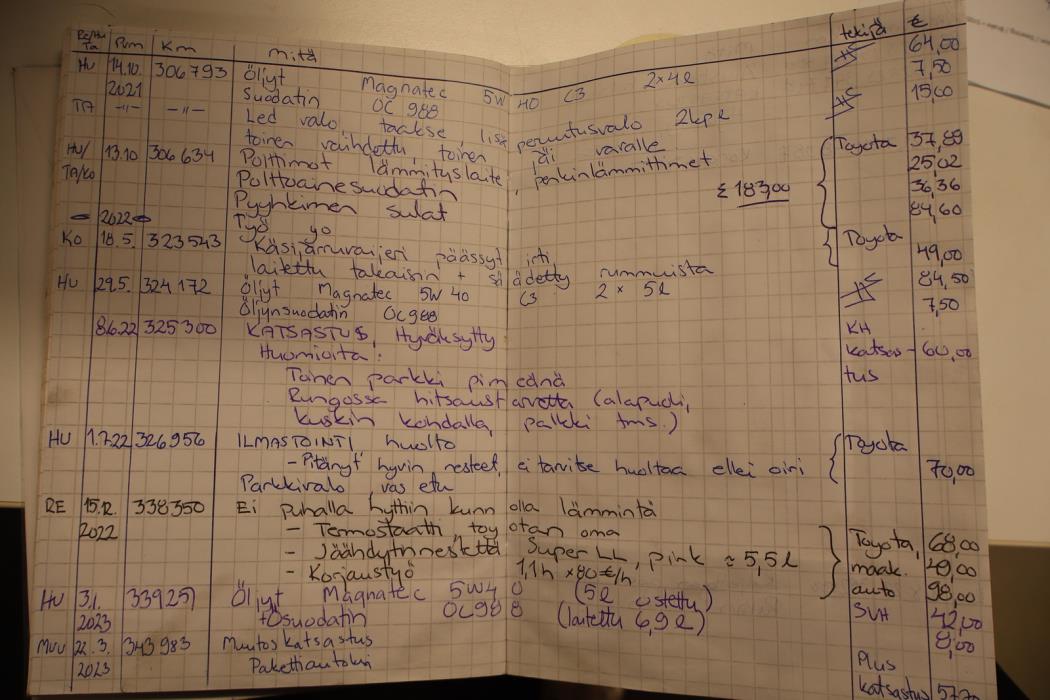 Re/Hu Ta Pvm Km mitä tekijä €
HU 14.10. 306793 Öljyt Magnatec 5W 40 C3 2x4l 64,00
2021 Suodatin OC 988 7,50
TA -"- -"- Led valo, taakse, lisä peruutusvalo 2kpl 15,00
toinen vaihdettu, toinen jäi varalle
HU/ 13.10 306634 Polttimot lämmityslaite, penkinlämmittimet Toyota 37,89
TA/KO Polttoainesuodatin 25,02
Pyyhkimen sulat £ 183,00 36,36
2022 Työ yo 84,60
KO 18.5. 323543 Käsijarruvaijeri päässyt irti Toyota
laitettu takaisin + säädetty rummuista 49,00
HU 29.5. 324172 Öljyt Magnatec 5W 40 C3 2 x 5l 84,50
Öljynsuodatin OC988 7,50
8.6.22 325300 KATSASTUS, Hyväksytty KH
Huomioita: katsas- 60,00
Toinen parkki pimeänä tus
Rungossa hitsaustarvetta (alapuoli,
kuskin kohdalla, palkki tms.)
HU 1.7.22 326956 ILMASTOINTI, huolto Toyota
- Pitänyt hyvin nesteet, ei tarvitse huoltaa ellei oiri 70,00
Parkkivalo vas etu
RE 15.12. 338350 Ei puhalla hyttiin kunnolla lämmintä
2022 - Termostaatti, toyotan oma Toyota, 68,00
- Jäähdytinnestettä Super LL, pink ≈ 5,5l maak. 49,00
- Korjaustyö 1,1h x 80€/h auto 98,00
HU 3.1. 339251 Öljyt Magnatec 5W40 (5l ostettu) SVH 42,00
2023 + Suodatin OC988 (laitettu 6,9l) 8,00
Muu 22.3. 343983 Muutoskatsastus Plus
2023 Pakettiautoksi katsastus 57,70